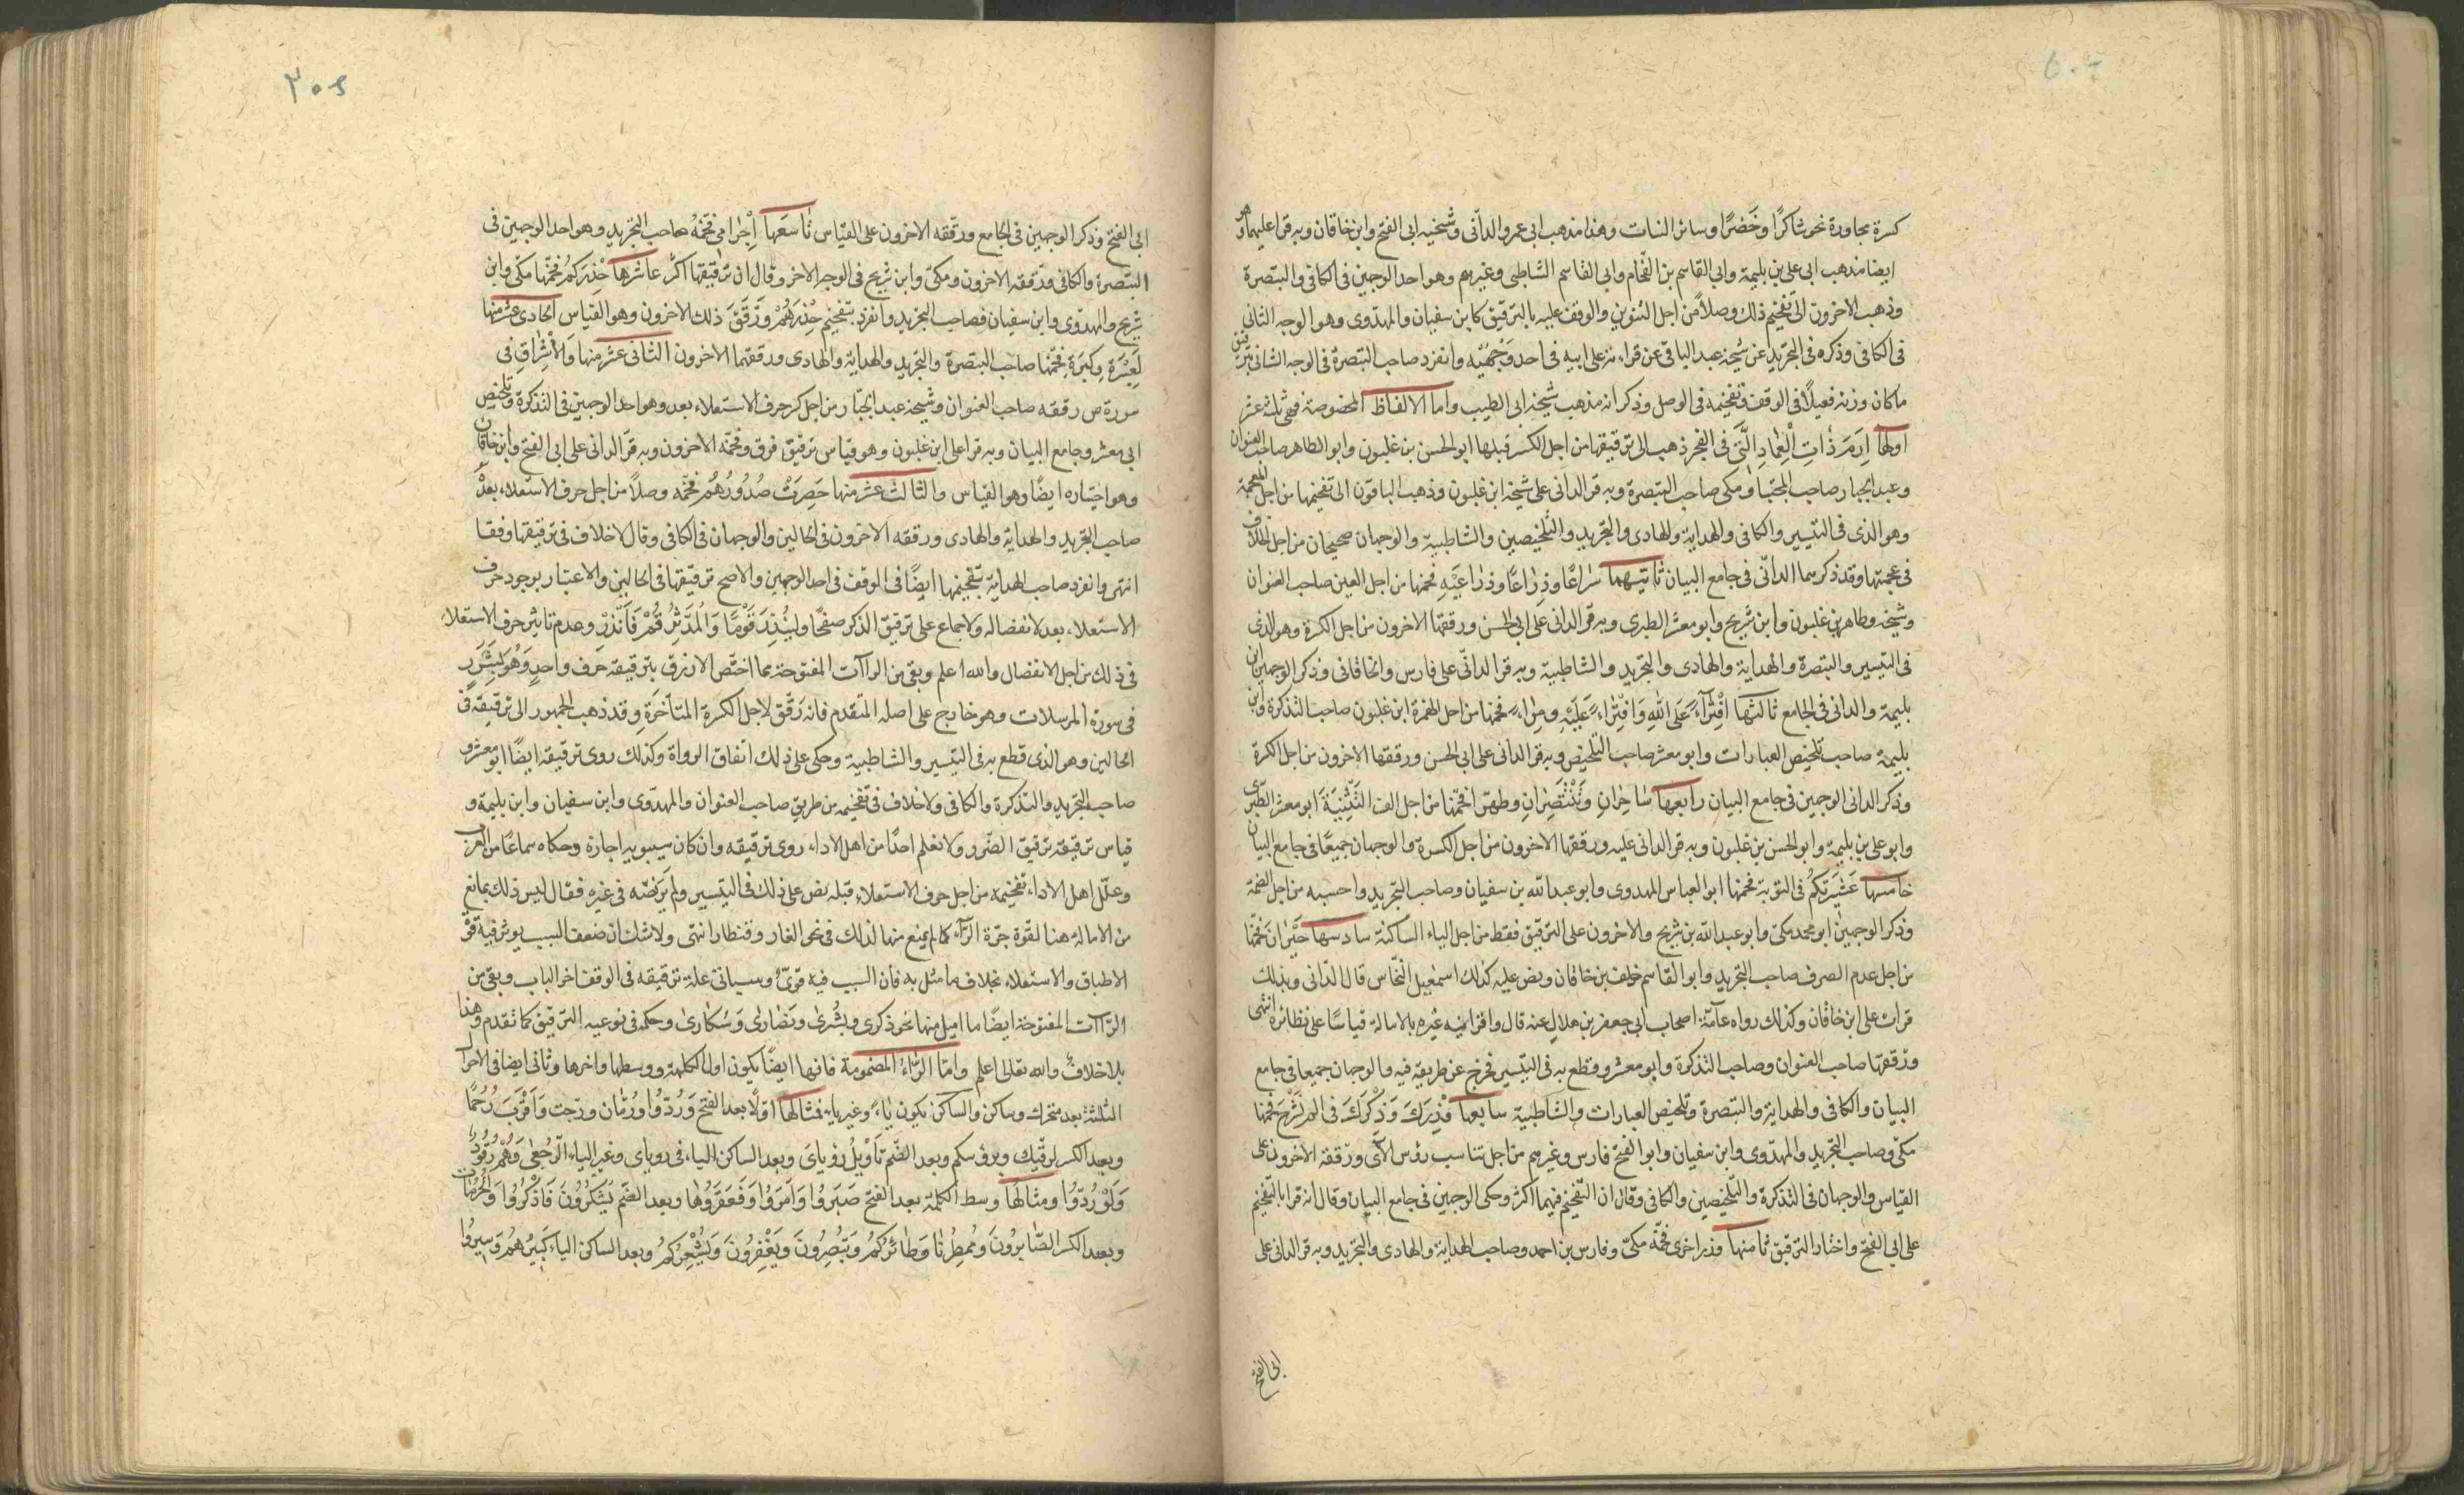 كسرة مجاورة نحو شاكرًا وخَضِرًا وسائر البنات وهذا مذهب ابى عمرو الدانى وشيخيه ابى الفتح وابن خاقان وبه قرا عليهما وهو
ايضا مذهب ابى على بن بليمة وابى القاسم بن الفحام وابى القاسم الشاطبى وغيرهم وهو احد الوجهين فى الكافى والتبصرة
وذهب الاخرون الى تفخيم ذلك وصلاً من اجل التنوين والوقف عليه بالترقيق كابن سفيان والمهدوى وهو الوجه الثانى
فى الكافى وذكره فى التجريد عن شيخه عبد الباقى عن قراءته على ابيه فى احد وَجْهَيْه وانفرد صاحب التبصرة فى الوجه الثانى بترقيق
ماكان وزنه فعيلاً فى الوقف وتفخيمه فى الوصل وذكر انه مذهب شيخه ابى الطيب واما الالفاظ المخصوصة فهى ثلثة عشر
اولها اِرَمَ ذَاتِ الْعِمَادِ الَّتِى فى الفجر ذهب الى ترقيقها من اجل الكسر قبلها ابو الحسن بن غلبون وابو الطاهر صاحب العنوان
وعبد الجبار صاحب المجتبا ومكى صاحب التبصرة وبه قرا الدانى على شيخه ابن غلبون وذهب الباقون الى تفخيمها من اجل العجمة
وهو الذى فى التيسير والكافى والهداية والهادى والتجريد والتلخيصين والشاطبية والوجهان صحيحان من اجل الخلاف
فى عجمتها وقد ذكرهما الدانى فى جامع البيان ثانيتهما سراعًا وذِرَاعًا وذراعَيْهِ فخمها من اجل العين صاحب العنوان
وشيخه وطاهر بن غلبون وابن شريح وابو معشر الطبرى وبه قرا الدانى على ابى الحسن ورققها الاخرون من اجل الكسرة وهو الذى
فى التيسير والتبصرة والهداية والهادى والتجريد والشاطبية وبه قرا الدانى على فارس والخاقانى وذكر الوجهين ابن
بليمة والدانى فى الجامع ثالثها افْتِرَآءً عَلَى اللهِ وَافْتِرَاءً عَلَيْهِ ومِرَاءً فخمها من اجل الهمزة ابن غلبون صاحب التذكرة وابن
بليمة صاحب تلخيص العبارات وابو معشر صاحب التلخيص وبه قرا الدانى على ابى الحسن ورققها الاخرون من اجل الكسرة
وذكر الدانى الوجهين فى جامع البيان رابعها سَاحِرَانِ وتَنْتَصِرَانِ وطهرا فخمها من اجل الف التَّثْنِيَةِ ابو معشر الطبرى
وابو على بن بليمة وابو الحسن بن غلبون وبه قرا الدانى عليه ورققها الاخرون من اجل الكسرة والوجهان جميعًا فى جامع البيان
خامسها عَشِيرَتُكُمْ فى التوبة فخمها ابو العباس المهدوى وابو عبد الله بن سفيان وصاحب التجريد واحسبه من اجل الضمة
وذكر الوجهين ابو محمد مكى وابو عبد الله بن شريح والاخرون على الترقيق فقط من اجل الياء الساكنة سادسها حَيْرَانَ فخمها
من اجل عدم الصرف صاحب التجريد وابو القاسم خلف بن خاقان ونص عليه كذلك اسمعيل النخاس قال الدانى وبذلك
قرات على ابن خاقان وكذلك رواه عامّة اصحاب ابى جعفر بن هلال عنه قال واقرانيه غيره بالامالة قياسًا على نظائره انتهى
ورققها صاحب العنوان وصاحب التذكرة وابو معشر وقطع به فى التيسير فخرج عن طريقه فيه والوجهان جميعا فى جامع
البيان والكافى والهداية والتبصرة وتلخيص العبارات والشاطبية سابعها وِزْرَكَ وَذِكْرَكَ فى الم نَشْرَحْ فخمها
مكى وصاحب التجريد والمهدوى وابن سفيان وابو الفتح فارس وغيرهم من اجل تناسب رؤس الآى ورققه الاخرون على
القياس والوجهان فى التذكرة والتلخيصين والكافى وقال ان التفخيم فيهما اكثر وحكى الوجهين فى جامع البيان وقال انه قرا بالتفخيم
على ابى الفتح واختار الترقيق ثامنها وزر اخرى فخّمه مكىّ وفارس بن احمد وصاحب الهداية والهادى والتجريد وبه قرا الدانى على
ابى الفتح
٣٠٥
ابى الفتح وذكر الوجهين فى الجامع ورققه الاخرون على القياس تاسعها اِجْرَامِى فخّمهُ صاحب التجريد وهو احد الوجهين فى
التبصرة والكافى ورققه الاخرون ومكى وابن شريح فى الوجه الاخر وقال ان ترقيقها اكثر عاشرها حِذْرَكُمْ فخمها مكى وابن
شريح والمهدوى وابن سفيان وصاحب التجريد وانفرد بتفخيم حِذْرَهُمْ وَرَقَّقَ ذلك الاخرون وهو القياس الحادى عشر منها
لَعِبْرَةً وكِبْرَهُ فخمها صاحب التبصرة والتجريد والهداية والهادى ورققها الاخرون الثانى عشر منها وَالْاِشْرَاقِ فى
سورة ص رققه صاحب العنوان وشيخه عبد الجبار من اجل كسر حرف الاستعلاء بعد وهو احد الوجهين فى التذكرة وتلخيص
ابى معشر وجامع البيان وبه قرا على ابن غلبون وهو قياس ترقيق فرق وفخمه الاخرون وبه قرا الدانى على ابى الفتح وابن خاقان
وهو اختياره ايضًا وهو القياس والثالث عشر منها حَصِرَتْ صُدُورُهُمْ فخّمه وصلاً من اجل حرف الاستعلاء بعدهُ
صاحب التجريد والهداية والهادى ورققه الاخرون فى الحالين والوجهان فى الكافى وقال لاخلاف فى ترقيقها وقفا
انتهى وانفرد صاحب الهداية بتفخيمها ايضًا فى الوقف فى احد الوجهين والاصح ترقيقها فى الحالين ولااعتبار بوجود حرف
الاستعلاء بعد لانفصاله ولاجماع على ترقيق الذكر صفحًا ولِيُنْذِرَ قَوْمًا وَالْمُدَّثِّرُ قُمْ فَاَنْذِرْ وعدم تاثير حرف الاستعلاء
فى ذلك من اجل الانفصال والله اعلم وبقى من الراآت المفتوحة مما اختص الازرق بترقيقه حَرف واحد وَهُوَ بِشَرَرٍ
فى سورة المرسلات وهو خارج على اصله المتقدم فانه رقّق لاجل الكسرة المتاخّرة وقد ذهب الجمهور الى ترقيقه فى
الحالين وهو الذى قطع به فى التيسير والشاطبية وحكى على ذلك اتفاق الرواة وكذلك روى ترقيقه ايضًا ابو معشر و
صاحب التجريد والتذكرة والكافى ولاخلاف فى تفخيمه من طريق صاحب العنوان والمهدوى وابن سفيان وابن بليمة و
قياس ترقيقه ترقيق الضرر ولا نعلم احدًا من اهل الاداء روى ترقيقه وان كان سيبويه اجازه وحكاه سماعًا من العرب
وعلّل اهل الاداء تفخيمه من اجل حرف الاستعلاء قبله نص على ذلك فى التيسير ولم يَرْتَضه فى غيره فقال ليس ذلك بمانع
من الامالة هنا لقوة جرّة الرّآء كما لم يمنع منها لذلك فى نحو الغار وقنطار انتهى ولاشك ان ضعف السبب يوثر فيه قوة
الاطباق والاستعلاء بخلاف ما مثل به فان السبب فيه قوىّ وسياتى علة ترقيقه فى الوقف اخر الباب وبقى من
الرّاآت المفتوحة ايضًا ما اميل منها نحو ذكرى وبشرى ونصارى وَسُكارى وحكمه فى نوعيه الترقيق كما تقدم وهذا
بلاخلاف والله تعالى اعلم وامّا الرّاءُ المضمومة فانها ايضًا يكون اول الكلمة ووسطها واخرها وتاتى ايضا فى الاحوال
الثلثة بعد متحرك وساكن والساكن يكون ياءً وغير ياء فمثالها اوّلاً بعد الفتح وَرُدُّوا ورُمّان ورجت وَاَقْرَبَ رُحْمًا
وبعد الكسر لرقيّك وبرؤسكم وبعد الضم تَاْوِيلُ رؤيَاىَ وبعد الساكن الياء فى روياى وغير الياء الرّجْعى وَهُمْ رُقُودٌ
وَلَوْ رُدّوُا ومثالها وسط الكلمة بعد الفتح صَبَرُوا وَاَمَرَوُا وَفَعَقَرُوها وبعد الضّم يَشْكُرُونَ فَاذْكُرُوا وَالحُرُمَات
وبعد الكسر الصَّابِرُونَ ومُمْطِرُنَا وَطَائِرُكُمْ وَيُبْصِرُونَ وَيَغْفِرُونَ وَيُشْعِرُكُمْ وبعد الساكن الياء كَبِيرُهُمْ وَسِيرُوا